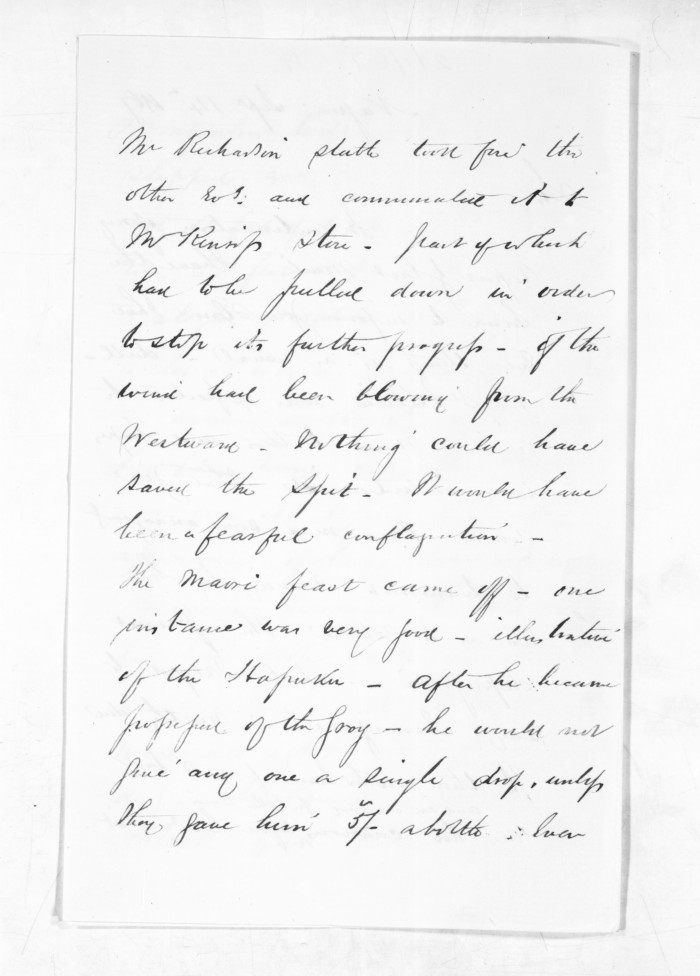 Mr Richardson's stable took fire the
other Evg. and communicated it to
McKinsiss Store - part of which
had to be pulled down in order
to stop its further progress - if the
wind had been blowing from the
Westward - Nothing could have
saved the Spit - It would have
been a fearful conflagration -
The Maori feast came off - one
instance was very good - illustrative
of the Hapuku - after he became
possessed of the Grog - he would not
give any one a single drop, unless
they gave him 5/- a bottle. Even